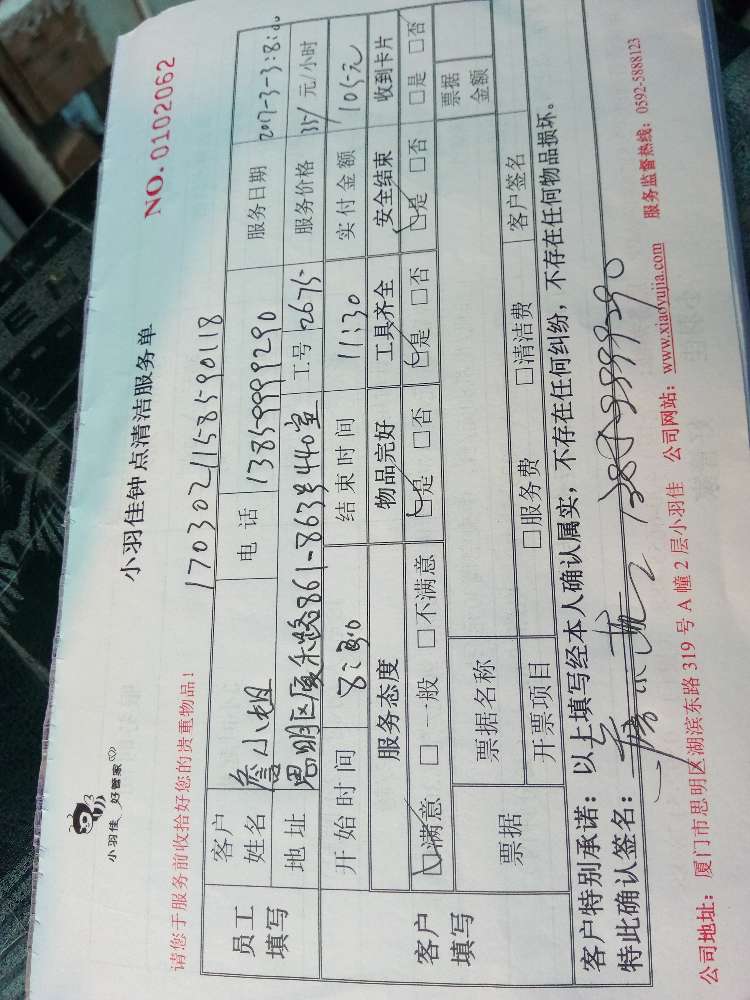 小羽佳 好管家
小羽佳钟点清洁服务单
NO. 0102062
请您于服务前收拾好您的贵重物品!
170302115859018
员工填写 客户姓名 詹小姐 电话 13859999290 服务日期 2017-3-3:8:00
地址 思明区厦禾路861-863号440室 工号 2675 服务价格 35/ 元/小时
客户填写 开始时间 8:30 结束时间 11:30 实付金额 105元
服务态度 物品完好 工具齐全 安全结束 收到卡片
☑满意 □一般 □不满意 ☑是 □否 ☑是 □否 ☑是 □否 □是 □否
票据 票据名称 票据金额
开票项目 □服务费 □清洁费 客户签名
客户特别承诺:以上填写经本人确认属实,不存在任何纠纷,不存在任何物品损坏。
特此确认签名:
公司地址:厦门市思明区湖滨东路 319 号 A 幢 2 层小羽佳 公司网站:www.xiaoyujia.com 服务监督热线:0592-5888123